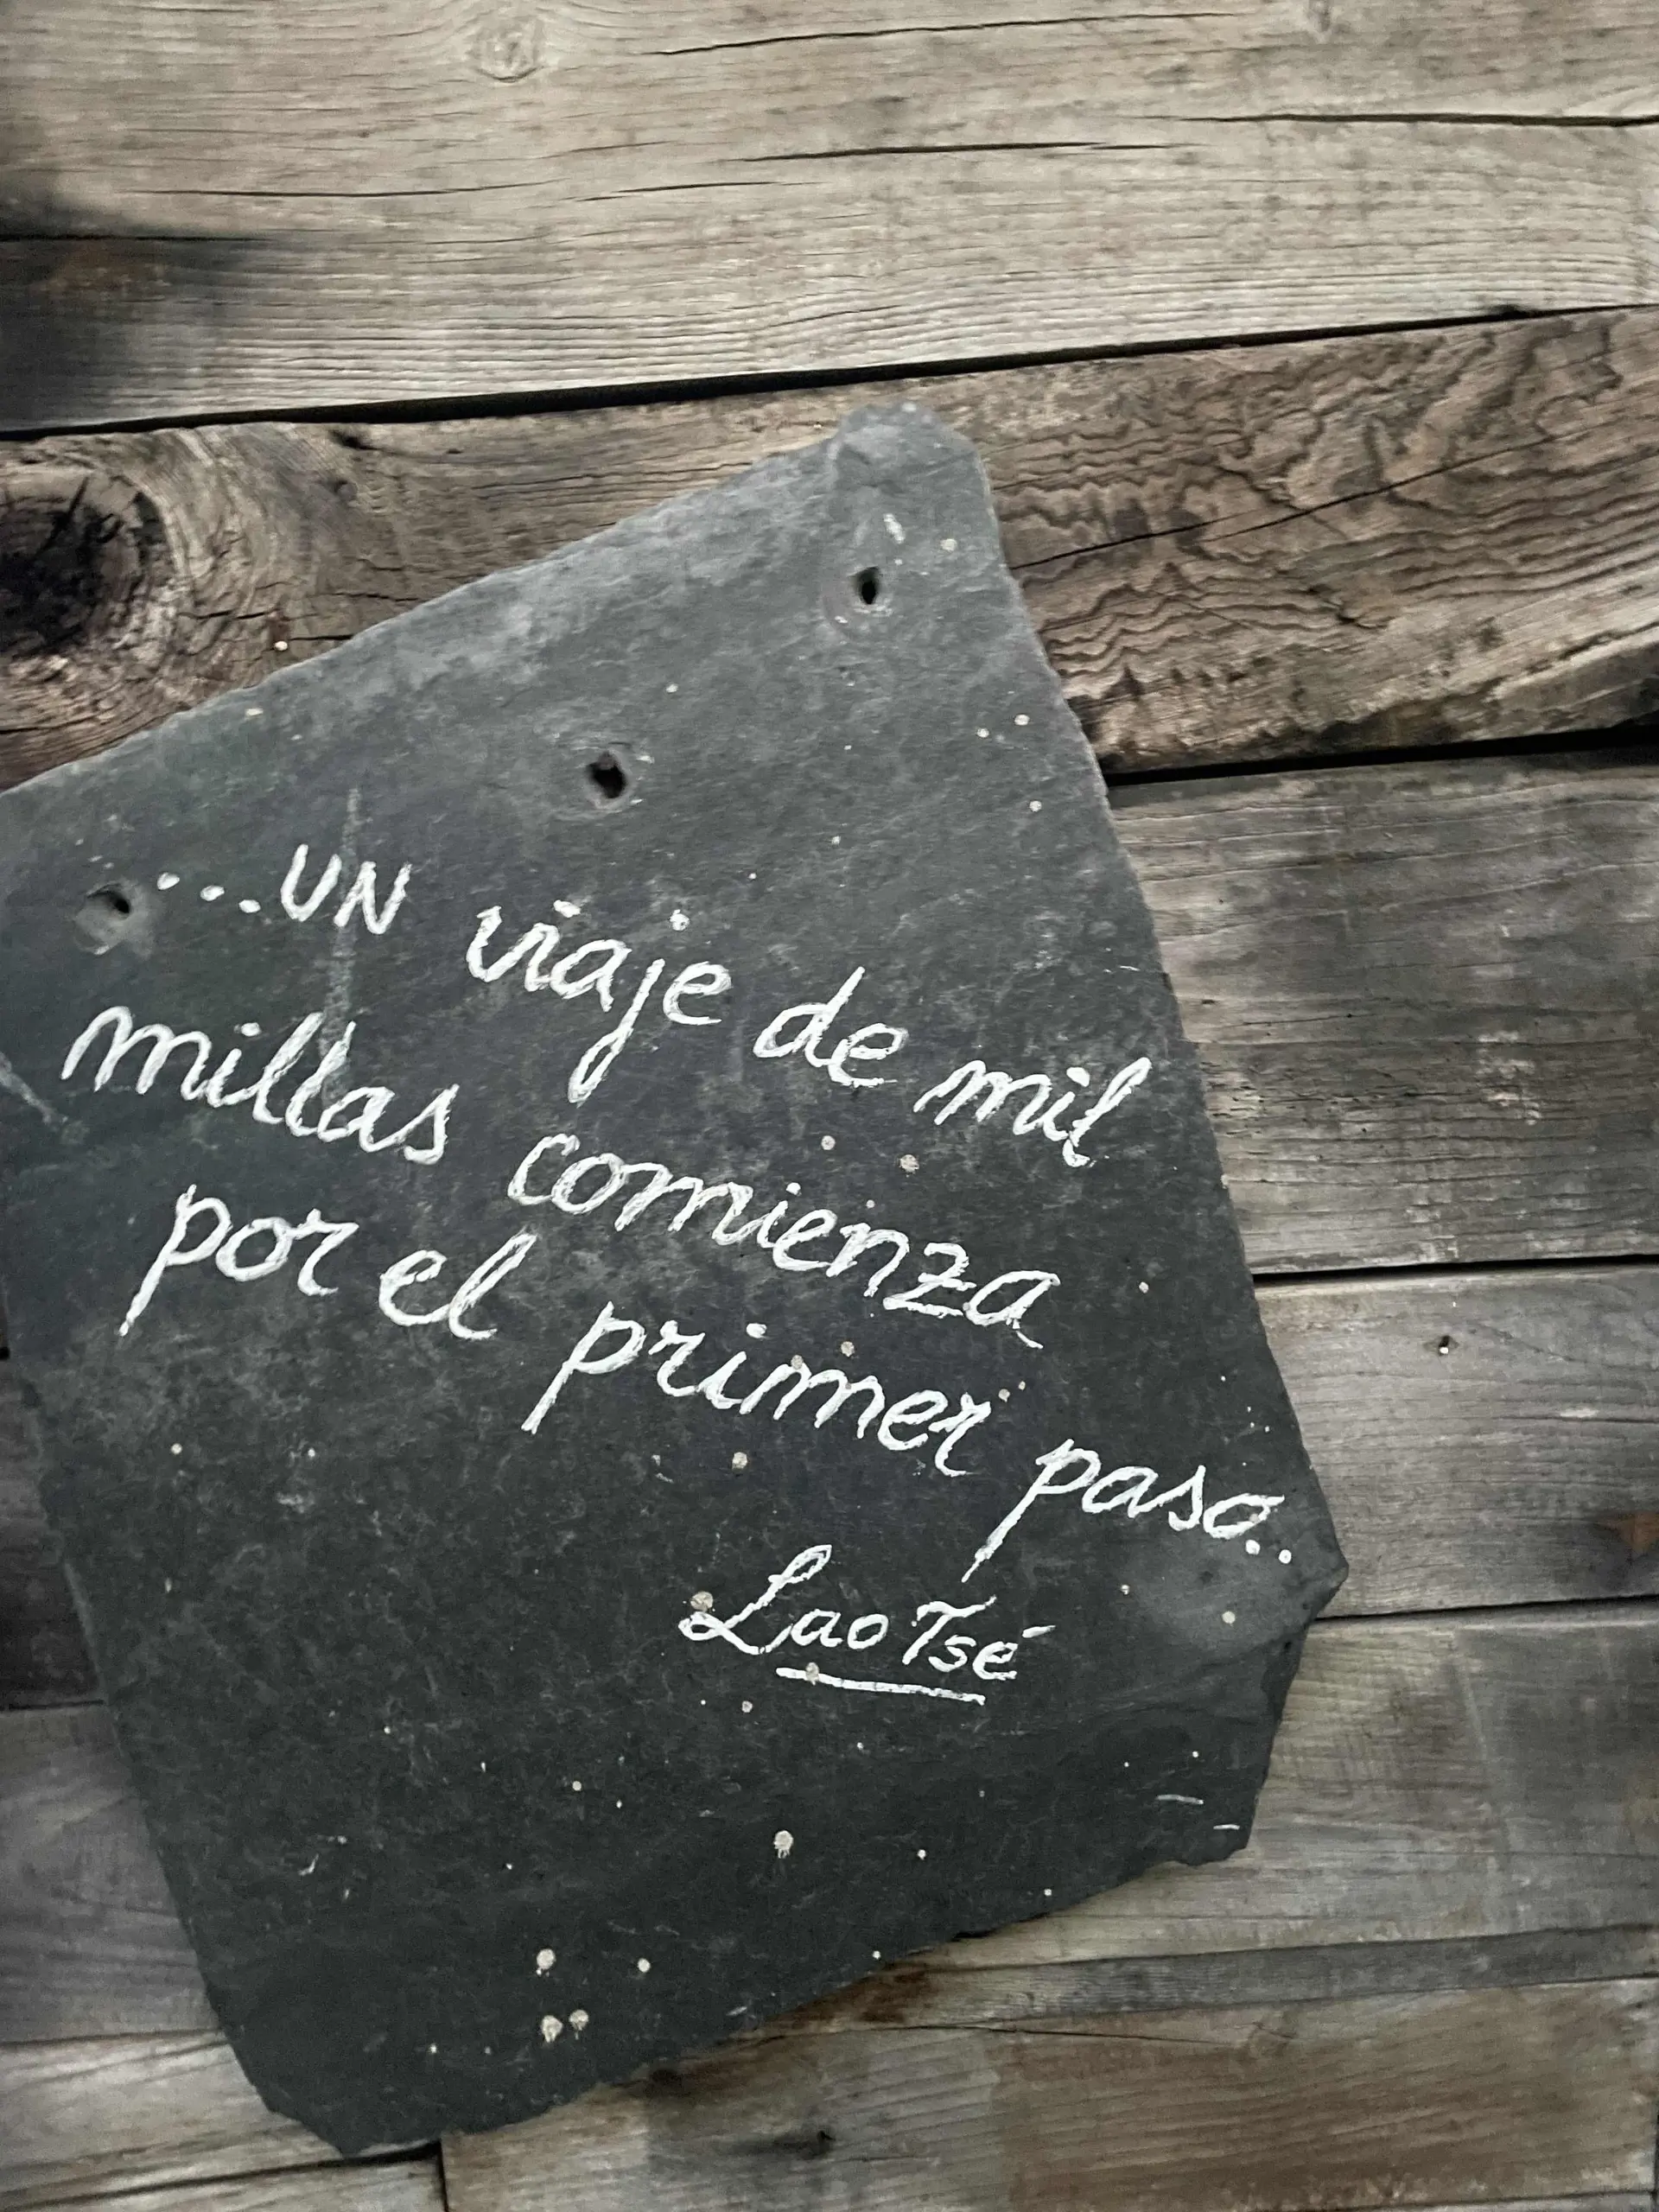 ...UN viaje de mil
millas comienza
por el primer paso..
Lao Tsé